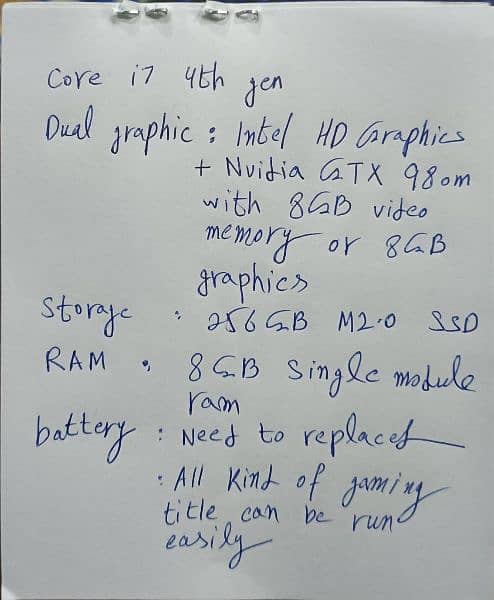 Core i7 4th gen
Dual graphic : Intel HD Graphics
+ Nvidia GTX 980m
with 8GB video
memory or 8GB
graphics
Storage : 256 GB M2.0 SSD
RAM : 8 GB Single module
ram
battery : Need to replaced
: All kind of gaming
title can be run
easily